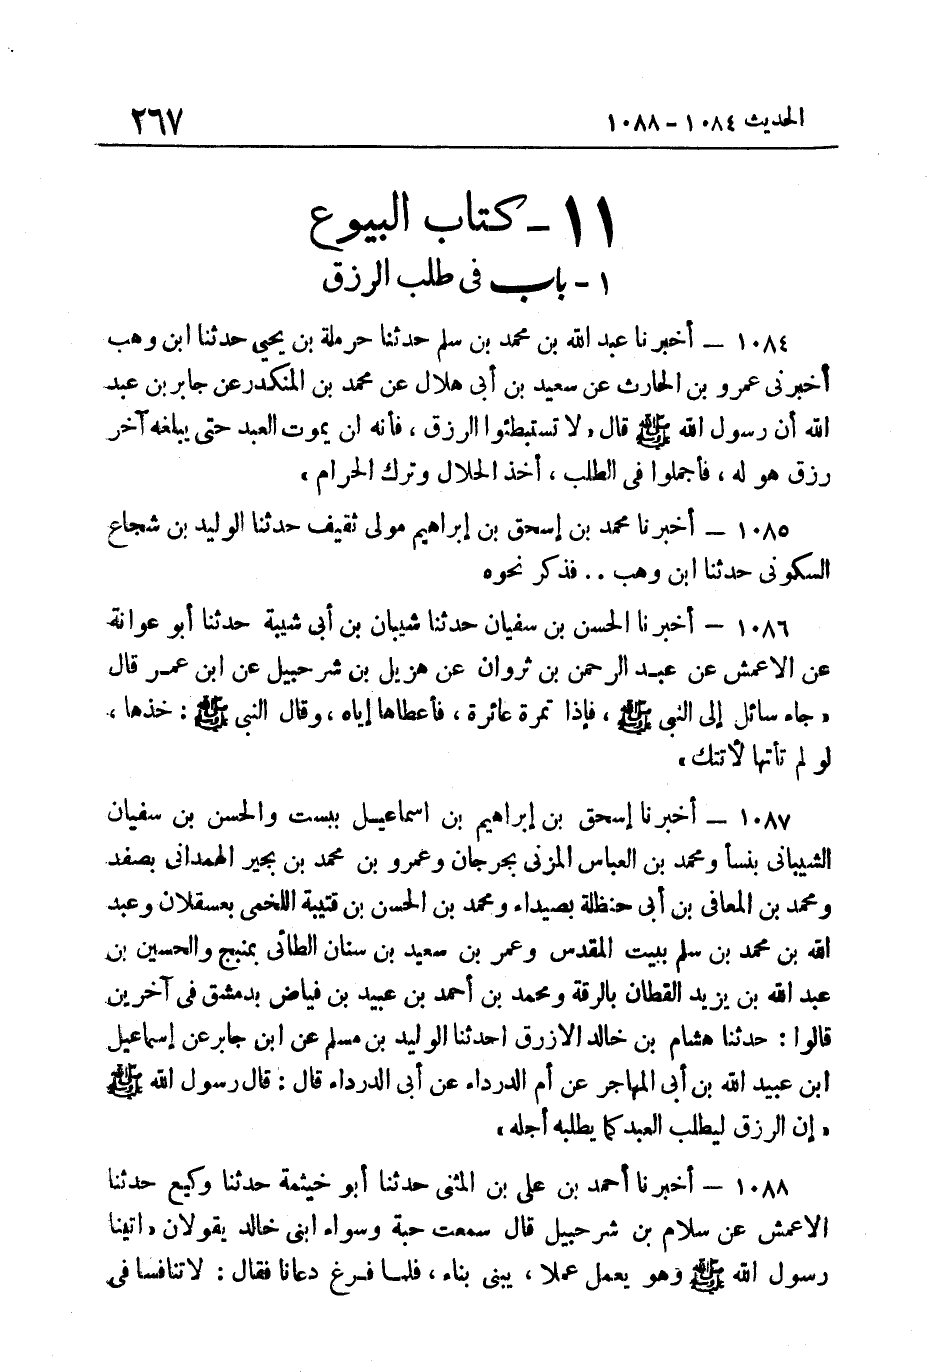 الحديث ١٠٨٤ - ١٠٨٨ ٢٦٧
١١ - كتاب البيوع
١ - باب فى طلب الرزق
١٠٨٤ — أخبرنا عبد الله بن محمد بن سلم حدثنا حرملة بن يحيى حدثنا ابن وهب
أخبرنى عمرو بن الحارث عن سعيد بن أبى هلال عن محمد بن المنكدر عن جابر بن عبد
الله أن رسول الله ﷺ قال « لا تستبطئوا الرزق ، فأنه ان يموت العبد حتى يبلغه آخر
رزق هو له ، فأجملوا فى الطلب ، أخذ الحلال وترك الحرام »
١٠٨٥ — أخبرنا محمد بن إسحق بن إبراهيم مولى ثقيف حدثنا الوليد بن شجاع
السكونى حدثنا ابن وهب .. فذكر نحوه
١٠٨٦ — أخبرنا الحسن بن سفيان حدثنا شيبان بن أبى شيبة حدثنا أبو عوانة
عن الاعمش عن عبد الرحمن بن ثروان عن هزيل بن شرحبيل عن ابن عمر قال
« جاء سائل إلى النبى ﷺ ، فإذا تمرة عائرة ، فأعطاها إياه ، وقال النبى ﷺ : خذها ،
لو لم تأتها لأتتك »
١٠٨٧ — أخبرنا إسحق بن إبراهيم بن اسماعيل ببست والحسن بن سفيان
الشيبانى بنسأ ومحمد بن العباس المزنى بجرجان وعمرو بن محمد بن بجير الهمدانى بصفد
ومحمد بن المعافى بن أبى حنظلة بصيداء ومحمد بن الحسن بن قتيبة اللخمى بعسقلان وعبد
الله بن محمد بن سلم ببيت المقدس وعمر بن سعيد بن سنان الطائى بمنبج والحسين بن
عبد الله بن يزيد القطان بالرقة ومحمد بن أحمد بن عبيد بن فياض بدمشق فى آخرين
قالوا : حدثنا هشام بن خالد الازرق احدثنا الوليد بن مسلم عن ابن جابر عن إسماعيل
ابن عبيد الله بن أبى المهاجر عن أم الدرداء عن أبى الدرداء قال : قال رسول الله ﷺ
« إن الرزق ليطلب العبد كما يطلبه أجله »
١٠٨٨ — أخبرنا أحمد بن على بن المثنى حدثنا أبو خيثمة حدثنا وكيع حدثنا
الاعمش عن سلام بن شرحبيل قال سمعت حبة وسواء ابنى خالد يقولان « اتينا
رسول الله ﷺ وهو يعمل عملا ، يبنى بناء ، فلما فرغ دعانا فقال : لا تنافسا فى